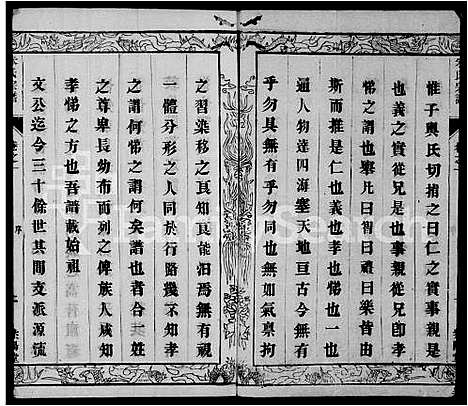 惟子輿氏切指之曰仁之實事親是
也義之實從兄是也事親從兄卽孝
悌之謂也舉凡曰智曰禮曰樂皆由
斯而推是仁也義也孝悌也一也
逼人物達四海塞天地亘古今無有
乎勿具無有乎勿同也無如氣禀拘
之習染移之眞知眞能汨焉無有視
一體分形之人同於行路幾不知孝
之謂何悌之謂何矣譜也者合一姓
之尊卑長幼而列之俾族人咸知
孝悌之方也吾譜載始祖
文公迄今三十餘世其間支派源流
序